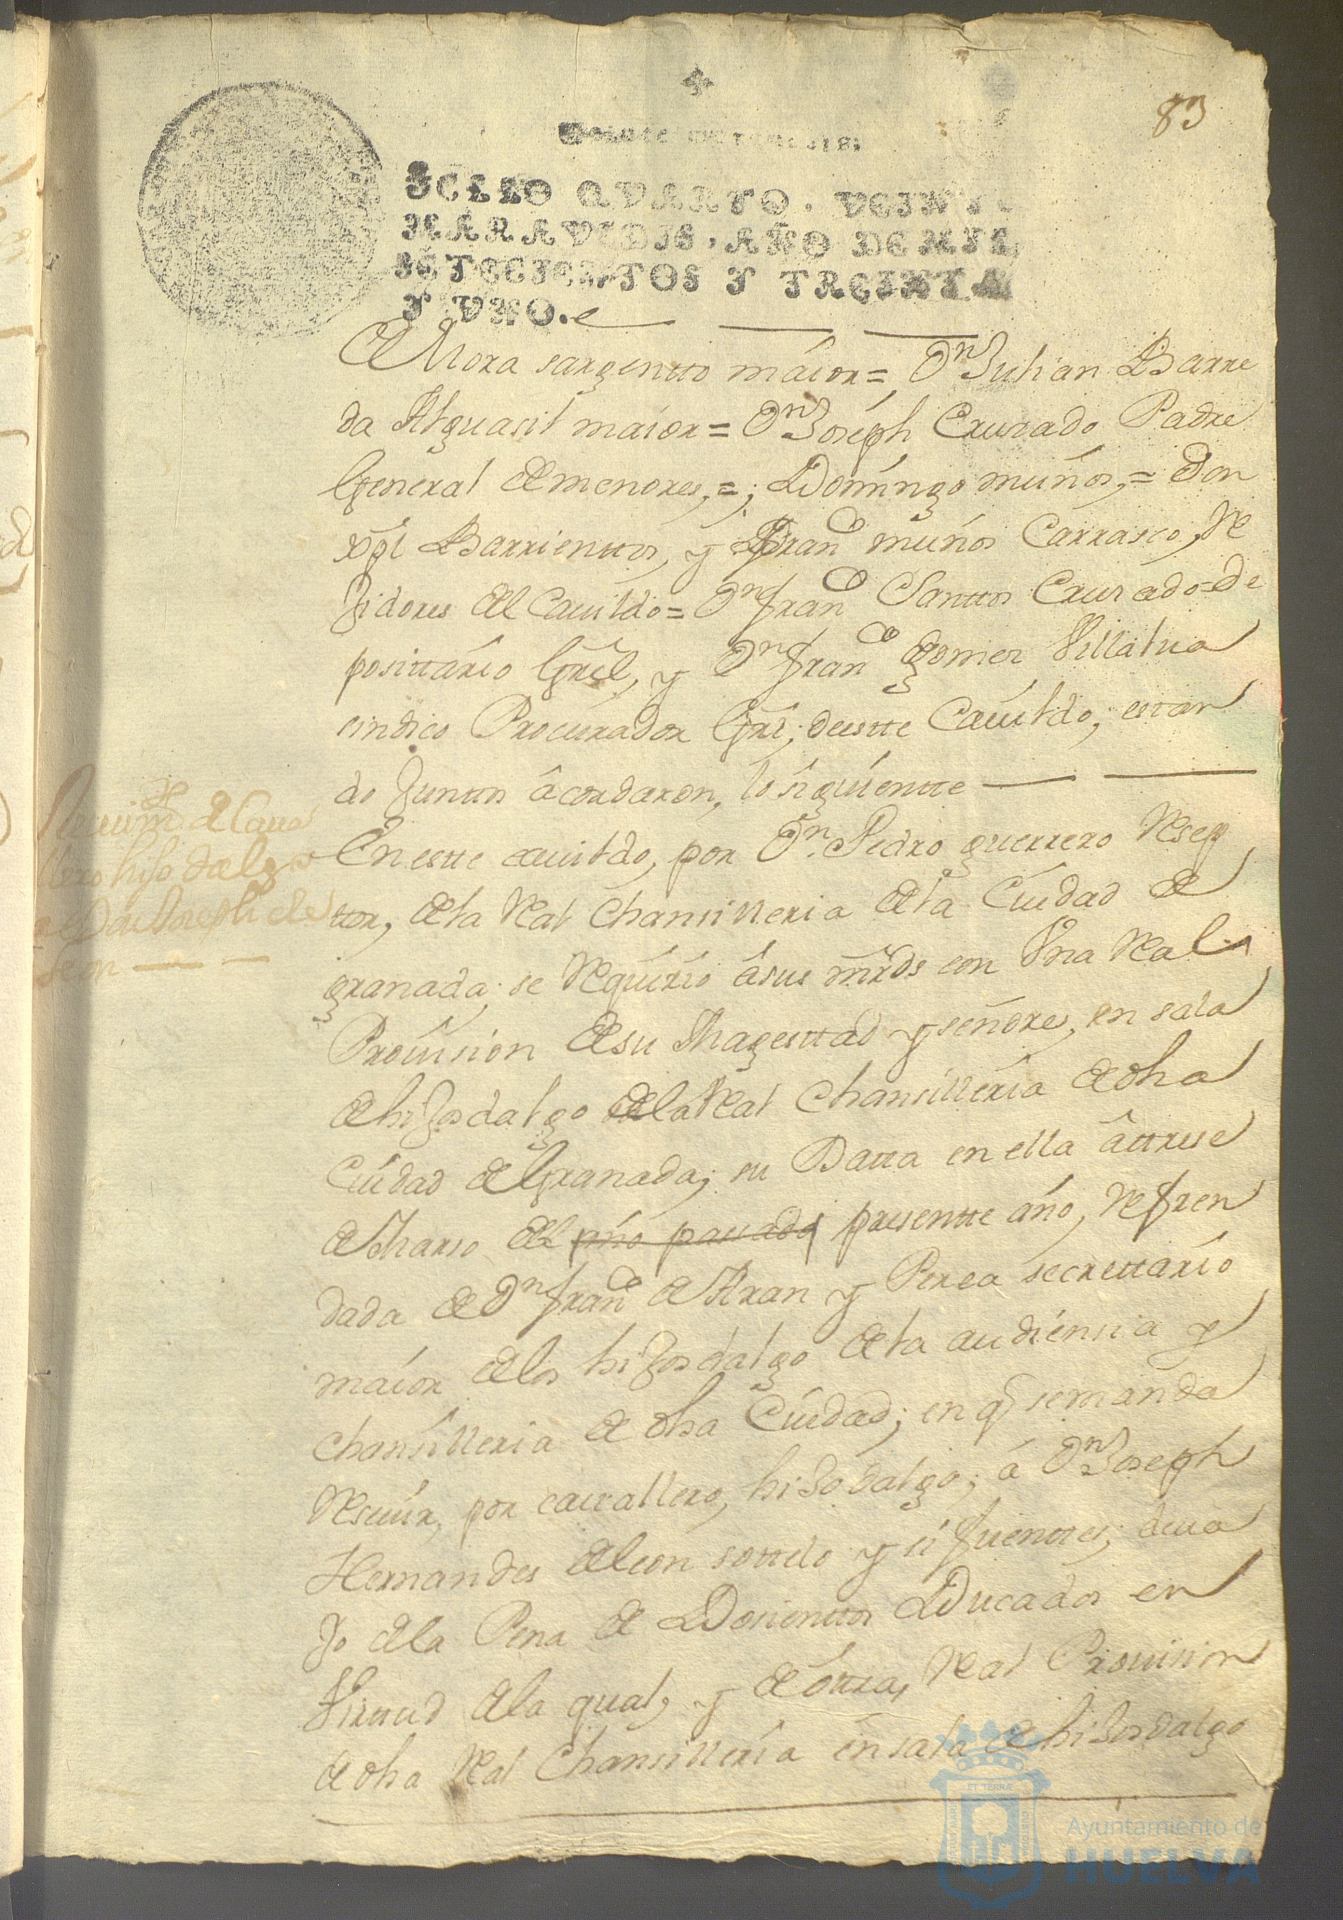 83
Veinte maravedis.
SELLO QVARTO, VEINTE
MARAVEDIS, AÑO DE MIL
SETECIENTOS Y TREINTA
Y VNO.
de Mora sargentto máior= Dn Julian Barre
da Alguasil maíor= Dn Joseph Crusado Padre
General de menores,=; Domingo muños,= don
xpl Barrienttos, y Franco muños Carrasco, Re
jidores del Cauildo= Dn franco Santtos Crusado= de
posittário Grâl, y Dn franco gomes Villalua
sindico Procurador Grâl, destte Cauildo, estan
do Junttos âcordaron, lo siguientte
Reciuimto de Caua
llero hijo dalgo
a Don Joseph de
Leon
En estte cauildo, por Dn. Pedro guerrero Resep
ttor, de la Real Chansilleria de la Ciudad de
granada; se Requirio âsus mrds con Vna Real
Prouision de su Magesttad y señores, en sala
de hijosdalgo de la Real Chansilleria de dha
Ciudad de Granada; su Datta en ella âttrese
de Marso del pño passado presentte año, Refren
dada de Dn franco de Aran y Perea secrettario
maíor de los hijosdalgo de la audiensia y
chansilleria de dha Ciudad; en q se manda
Resiuir, por cauallero, hijodalgo; á Dn Joseph
Hernandes de Leon sottelo y si fuenttes; deua
jo de la Pena de Dosienttos Ducados en
Virttud de la qual, y de ôttra, Real Prouision
de dha Real Chansilleria en sala de hijosdalgo
ET TERRÆ
Ayuntamiento de
HUELVA